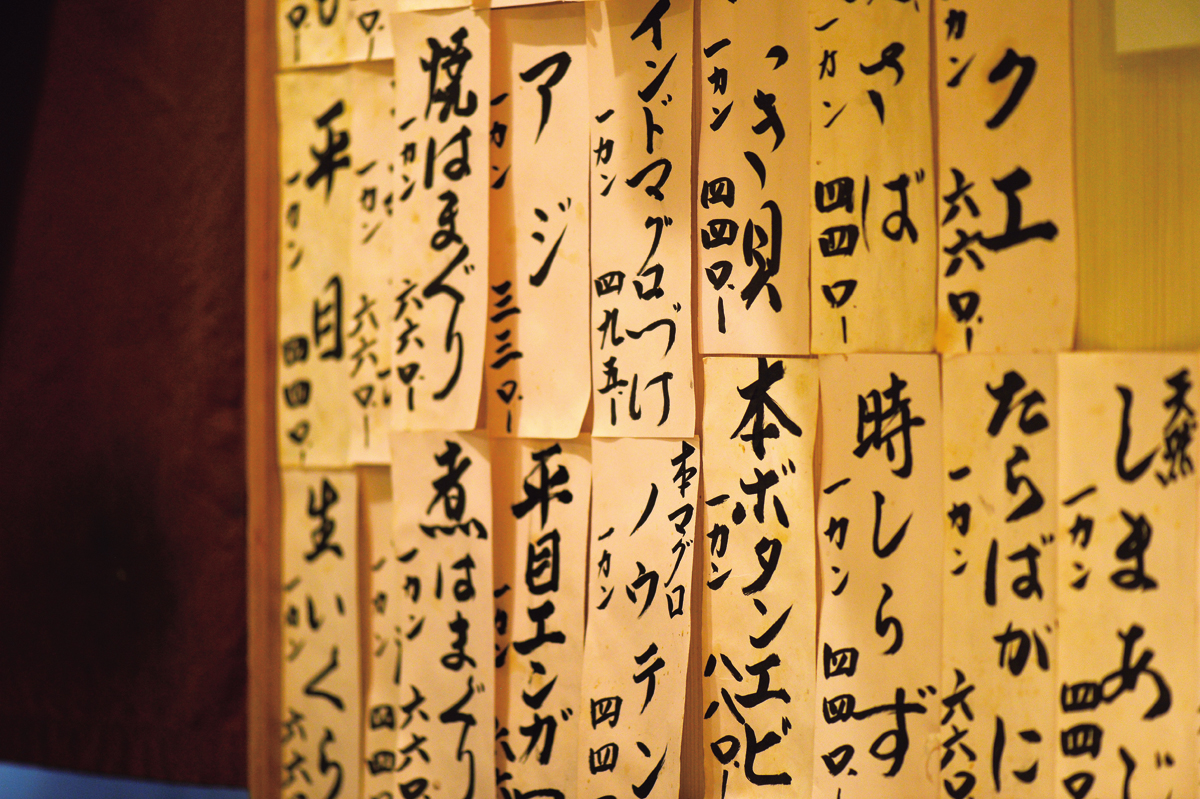 クエ
一カン 六六〇.ー
さば
一カン 四四〇.ー
っき貝
一カン 四四〇.ー
インドマグロづけ
一カン 四九五ー
アジ
一カン 三三〇.ー
焼はまぐり
一カン 六六〇.ー
一カン 六六〇.ー
平目
一カン 四四〇.ー
天然
しまあじ
一カン 四四〇
たらばがに
一カン 六六〇
時しらず
一カン 四四〇.
本ボタンエビ
一カン 八八〇.ー
本マグロ
ノウテン
一カン 四四
平目エンガ
一カン 六
煮はまぐり
一カン 六六〇
一カン 四四
生いくら
一カン 六六